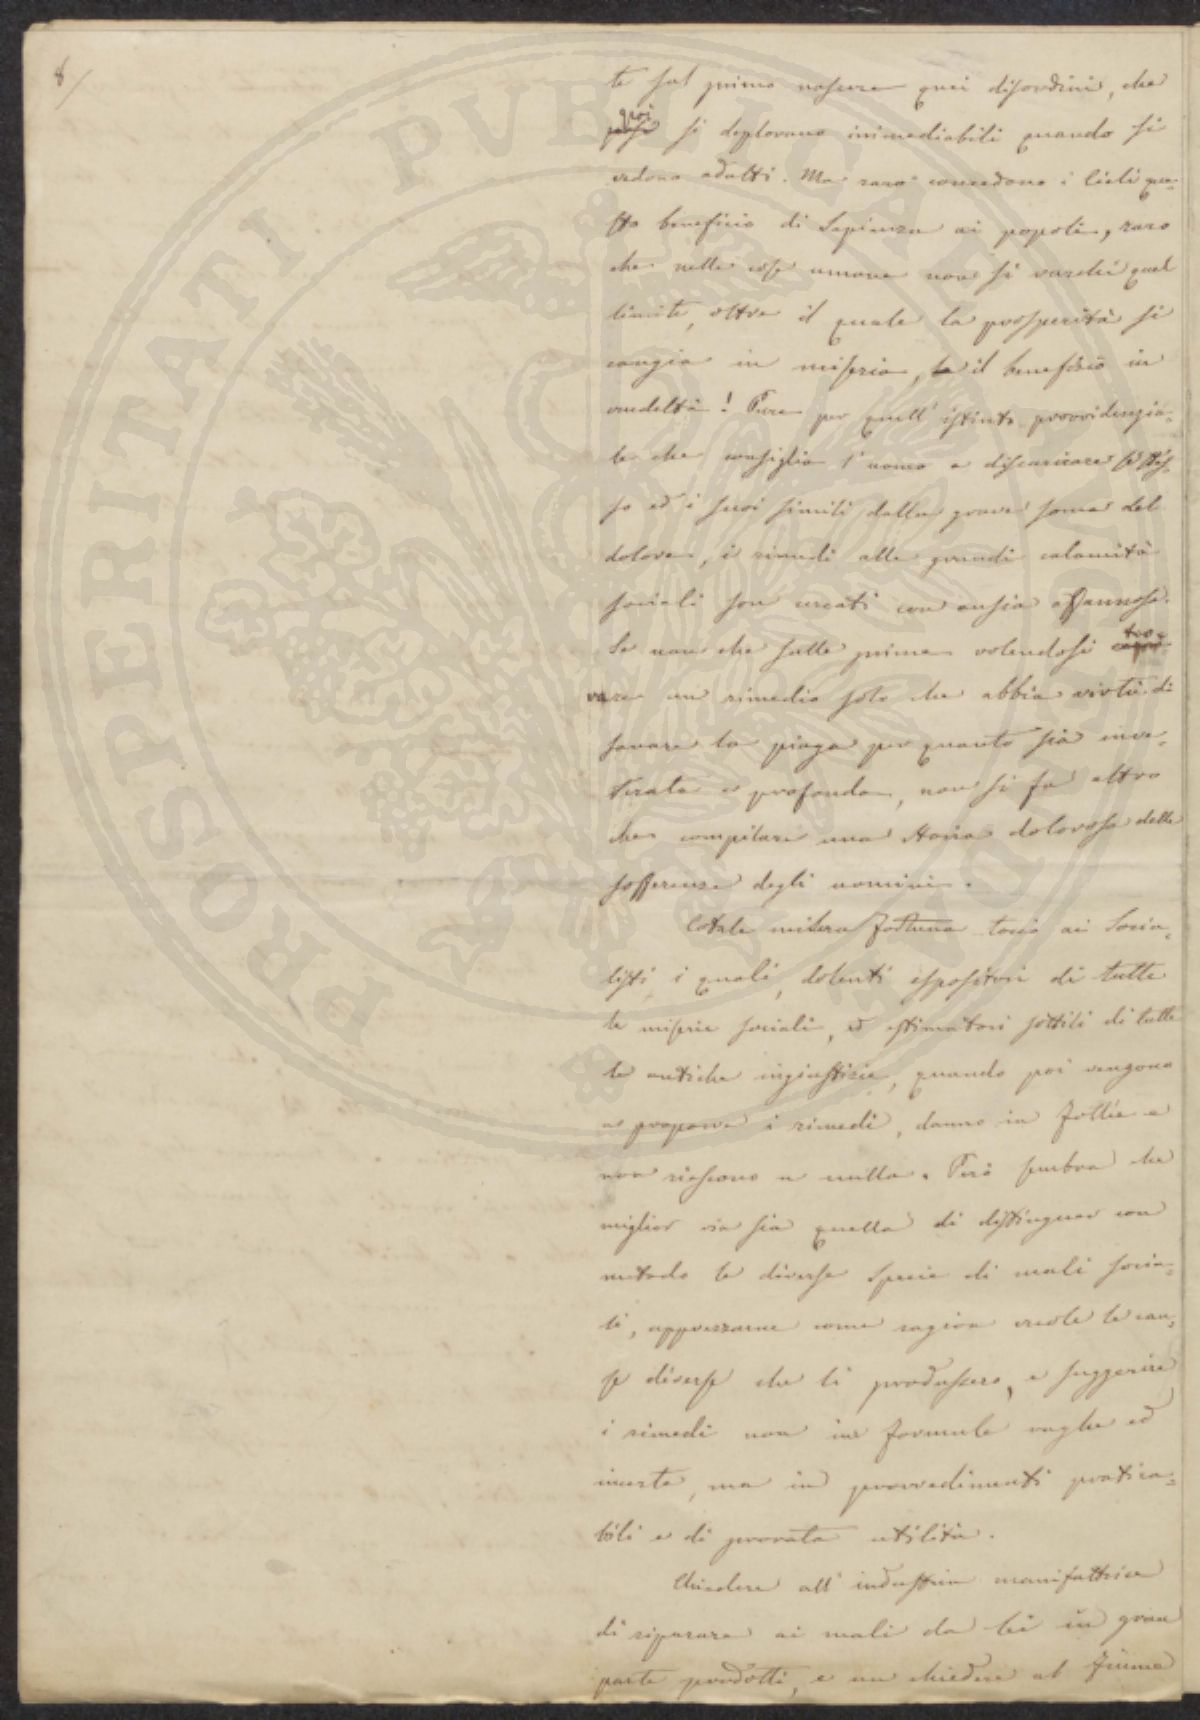 8/
te sul primo nascere quei disordini, che
poi si deplorano irrimediabili quando si
vedono adulti. Ma raro concedono i Cieli que=
sto beneficio di Sapienza ai popoli, raro
che nelle cose umane non si varchi quel
limite, oltre il quale la prosperità si
cangia in miseria, il beneficio in
crudeltà! Pure per quell' istinto provvidenzia=
le che consiglia l'uomo a discaricare se stes=
so ed i suoi simili dalla grave soma del
dolore, i rimedi alle grandi calamità
sociali son cercati con ansia affannosa.
Se non che sulle prime volendosi tro=
vare un rimedio solo che abbia virtù di
sanare la piaga per quanto sia inve=
terata e profonda, non si fa altro
che compilare una storia dolorosa delle
sofferenze degli uomini.
Cotale misera fortuna toccò ai Socia=
listi i quali, dolenti espositori di tutte
le miserie sociali, ed estimatori sottili di tutte
le antiche ingiustizie, quando poi vengono
a proporre i rimedi, danno in follie e
non riescono a nulla. Però sembra che
miglior via sia quella di distinguer con
metodo le diverse specie di mali socia=
li, apprezzarne come ragion vuole le cau=
se diverse che li produssero, e suggerire
i rimedi non in formule vaghe ed
incerte, ma in provvedimenti pratica=
bili e di provata utilità.
Chiedere all' industria manifattrice
di riparare ai mali da lei in gran
parte prodotti, è un chiedere al fiume
PROSPERITATI PVBLICAE AVGENDAE